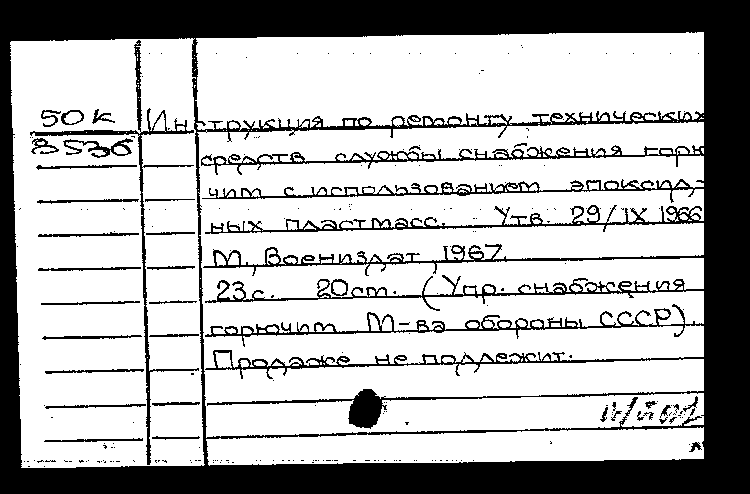 50К Инструкция по ремонту технических
средств службы снабжения горю
чим с использованием эпоксид-
ных пластмасс. Утв. 29/IX 1966
М., Воениздат, 1967.
23с. 20см. (Упр. снабжения
горючим М-ва обороны СССР).
Продаже не подлежит.